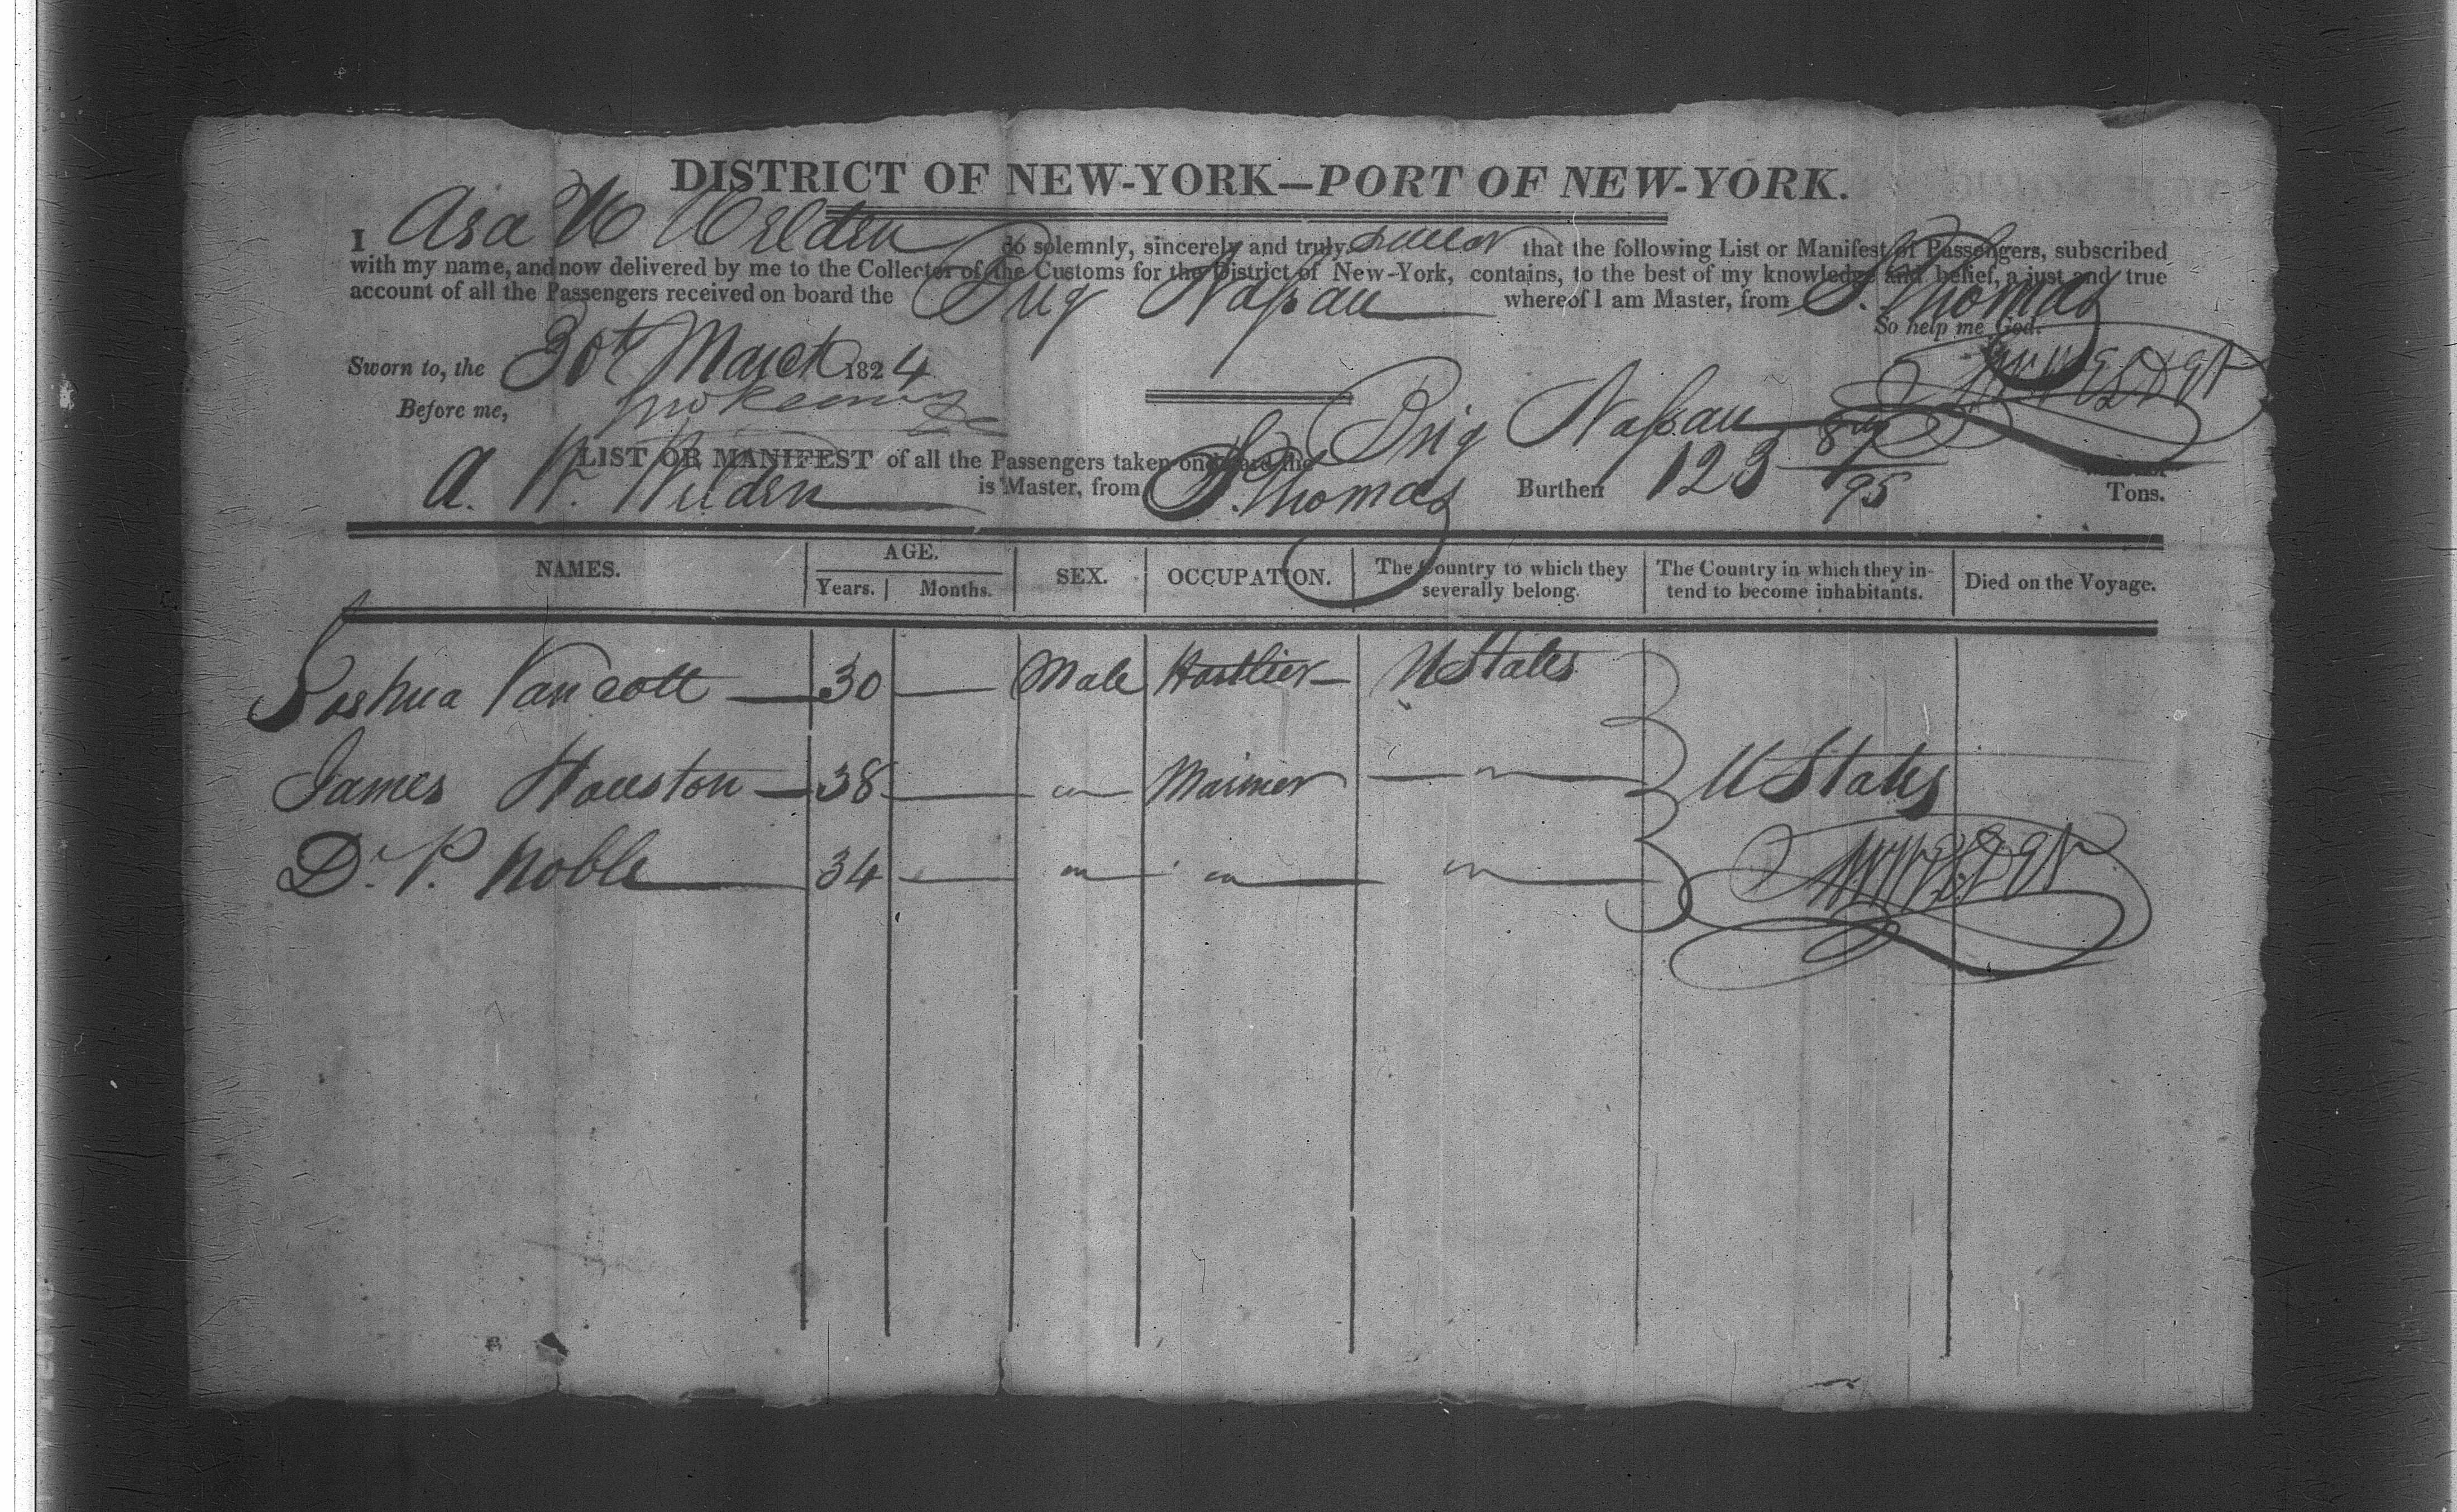 DISTRICT OF NEW-YORK—PORT OF NEW-YORK.
I Asa W Welden do solemnly, sincerely and truly swear that the following List or Manifest of Passengers, subscribed
with my name, and now delivered by me to the Collector of the Customs for the District of New-York, contains, to the best of my knowledge and belief, a just and true
account of all the Passengers received on board the Brig Nassau whereof I am Master, from St. Thomas
So help me God.
Sworn to, the 30th March 1824
AWWelden
Before me,
LIST OR MANIFEST of all the Passengers taken on board the Brig Nassau
A. W. Welden is Master, from St. Thomas Burthen 123 89/95 Tons.
NAMES. AGE. Years. Months. SEX. OCCUPATION. The Country to which they severally belong. The Country in which they intend to become inhabitants. Died on the Voyage.
Joshua Vancott 30 Male U States
James Houston 38 " Mariner " U States
Dr. P. Noble 34 " " "
AWWelden